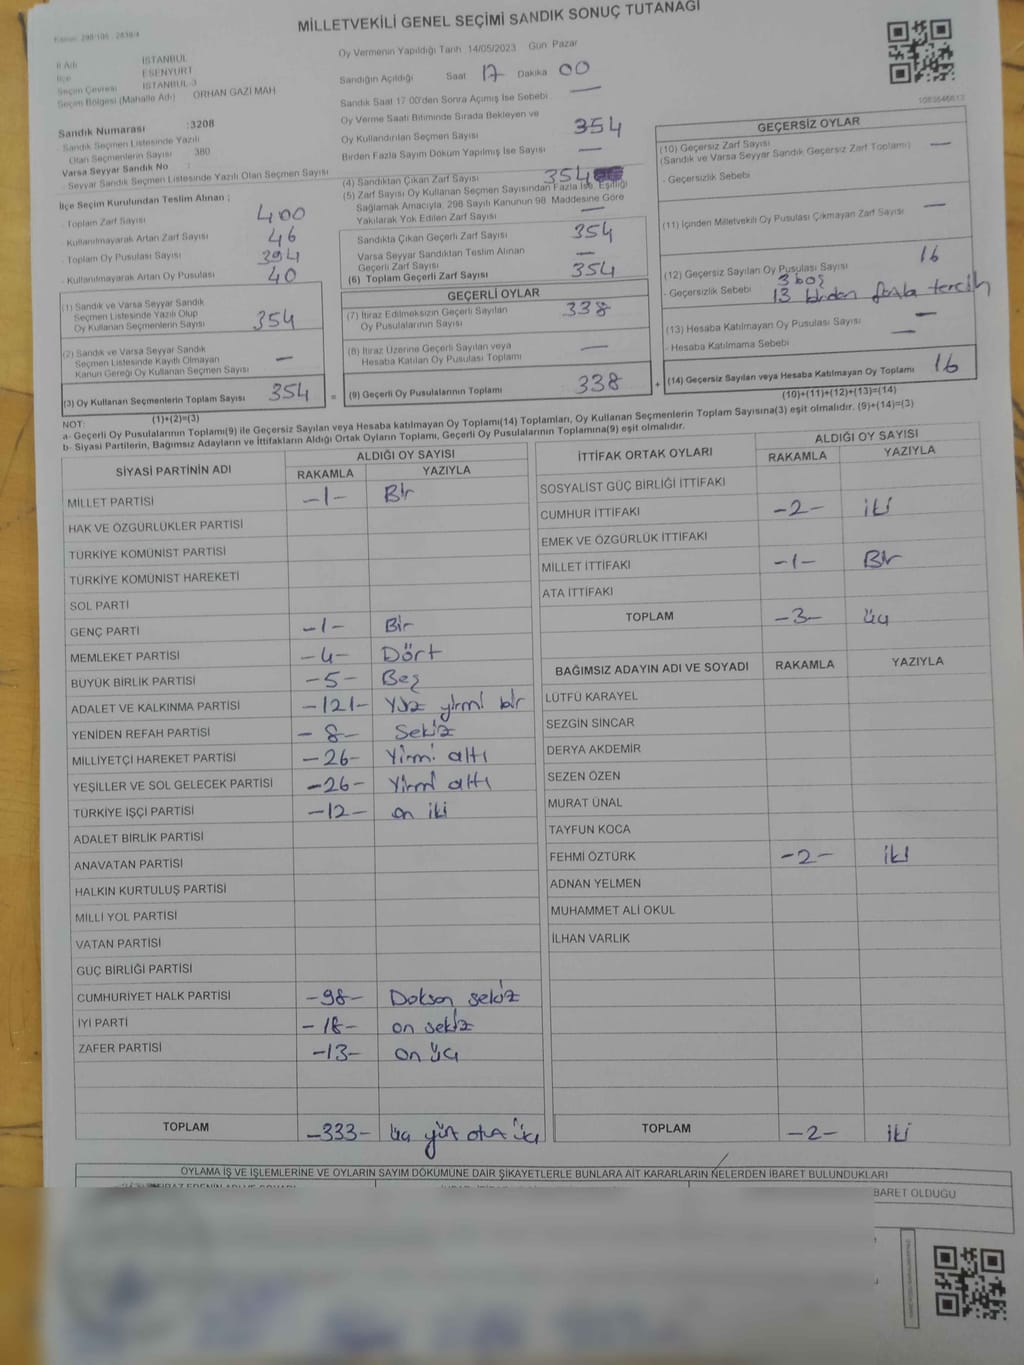 MİLLETVEKİLİ GENEL SEÇİMİ SANDIK SONUÇ TUTANAĞI
İl Adı İSTANBUL
İlçe ESENYURT
Seçim Çevresi İSTANBUL-3
Seçim Bölgesi (Mahalle Adı) ORHAN GAZİ MAH.
Sandık Numarası :3208
- Sandık Seçmen Listesinde Yazılı
Olan Seçmenlerin Sayısı 380
Varsa Seyyar Sandık No :
- Seyyar Sandık Seçmen Listesinde Yazılı Olan Seçmen Sayısı
İlçe Seçim Kurulundan Teslim Alınan ;
- Toplam Zarf Sayısı 400
- Kullanılmayarak Artan Zarf Sayısı 46
- Toplam Oy Pusulası Sayısı 394
- Kullanılmayarak Artan Oy Pusulası 40
(1) Sandık ve Varsa Seyyar Sandık
Seçmen Listesinde Yazılı Olup
Oy Kullanan Seçmenlerin Sayısı 354
(2) Sandık ve Varsa Seyyar Sandık
Seçmen Listesinde Kayıtlı Olmayan
Kanun Gereği Oy Kullanan Seçmen Sayısı —
(3) Oy Kullanan Seçmenlerin Toplam Sayısı 354
(1)+(2)=(3)
Oy Vermenin Yapıldığı Tarih 14/05/2023 Gün Pazar
Sandığın Açıldığı Saat 17 Dakika 00
Sandık Saat 17 00'den Sonra Açımış İse Sebebi —
Oy Verme Saati Bitiminde Sırada Bekleyen ve
Oy Kullandırılan Seçmen Sayısı 354
Birden Fazla Sayım Döküm Yapılmış İse Sayısı —
(4) Sandıktan Çıkan Zarf Sayısı 354
(5) Zarf Sayısı Oy Kullanan Seçmen Sayısından Fazla İse, Eşitliği
Sağlamak Amacıyla, 298 Sayılı Kanunun 98. Maddesine Göre
Yakılarak Yok Edilen Zarf Sayısı —
Sandıkta Çıkan Geçerli Zarf Sayısı 354
Varsa Seyyar Sandıktan Teslim Alınan
Geçerli Zarf Sayısı —
(6) Toplam Geçerli Zarf Sayısı 354
GEÇERLİ OYLAR
(7) İtiraz Edilmeksizin Geçerli Sayılan
Oy Pusulalarının Sayısı 338
(8) İtiraz Üzerine Geçerli Sayılan veya
Hesaba Katılan Oy Pusulası Toplamı —
= (9) Geçerli Oy Pusulalarının Toplamı 338 +
GEÇERSİZ OYLAR
(10) Geçersiz Zarf Sayısı
(Sandık ve Varsa Seyyar Sandık Geçersiz Zarf Toplamı) —
- Geçersizlik Sebebi
(11) İçinden Milletvekili Oy Pusulası Çıkmayan Zarf Sayısı —
(12) Geçersiz Sayılan Oy Pusulası Sayısı 16
- Geçersizlik Sebebi 3 boş
13 birden fazla tercih
(13) Hesaba Katılmayan Oy Pusulası Sayısı —
- Hesaba Katılmama Sebebi —
(14) Geçersiz Sayılan veya Hesaba Katılmayan Oy Toplamı 16
(10)+(11)+(12)+(13)=(14)
NOT:
a- Geçerli Oy Pusulalarının Toplamı(9) ile Geçersiz Sayılan veya Hesaba katılmayan Oy Toplamı(14) Toplamları, Oy Kullanan Seçmenlerin Toplam Sayısına(3) eşit olmalıdır. (9)+(14)=(3)
b- Siyasi Partilerin, Bağımsız Adayların ve İttifakların Aldığı Ortak Oyların Toplamı, Geçerli Oy Pusulalarının Toplamına(9) eşit olmalıdır.
SİYASİ PARTİNİN ADI ALDIĞI OY SAYISI
RAKAMLA YAZIYLA
MİLLET PARTİSİ -1- Bir
HAK VE ÖZGÜRLÜKLER PARTİSİ
TÜRKİYE KOMÜNİST PARTİSİ
TÜRKİYE KOMÜNİST HAREKETİ
SOL PARTİ
GENÇ PARTİ -1- Bir
MEMLEKET PARTİSİ -4- Dört
BÜYÜK BİRLİK PARTİSİ -5- Beş
ADALET VE KALKINMA PARTİSİ -121- Yüz yirmi bir
YENİDEN REFAH PARTİSİ -8- Sekiz
MİLLİYETÇİ HAREKET PARTİSİ -26- Yirmi altı
YEŞİLLER VE SOL GELECEK PARTİSİ -26- Yirmi altı
TÜRKİYE İŞÇİ PARTİSİ -12- on iki
ADALET BİRLİK PARTİSİ
ANAVATAN PARTİSİ
HALKIN KURTULUŞ PARTİSİ
MİLLİ YOL PARTİSİ
VATAN PARTİSİ
GÜÇ BİRLİĞİ PARTİSİ
CUMHURİYET HALK PARTİSİ -98- Doksan sekiz
İYİ PARTİ -18- on sekiz
ZAFER PARTİSİ -13- on üç
TOPLAM -333- üç yüz otuz üç
İTTİFAK ORTAK OYLARI ALDIĞI OY SAYISI
RAKAMLA YAZIYLA
SOSYALİST GÜÇ BİRLİĞİ İTTİFAKI
CUMHUR İTTİFAKI -2- iki
EMEK VE ÖZGÜRLÜK İTTİFAKI
MİLLET İTTİFAKI -1- Bir
ATA İTTİFAKI
TOPLAM -3- üç
BAĞIMSIZ ADAYIN ADI VE SOYADI RAKAMLA YAZIYLA
LÜTFÜ KARAYEL
SEZGİN SİNCAR
DERYA AKDEMİR
SEZEN ÖZEN
MURAT ÜNAL
TAYFUN KOCA
FEHMİ ÖZTÜRK -2- iki
ADNAN YELMEN
MUHAMMET ALİ OKUL
İLHAN VARLIK
TOPLAM -2- iki
OYLAMA İŞ VE İŞLEMLERİNE VE OYLARIN SAYIM DÖKÜMÜNE DAİR ŞİKAYETLERLE BUNLARA AİT KARARLARIN NELERDEN İBARET BULUNDUKLARI
BARET OLDUĞU